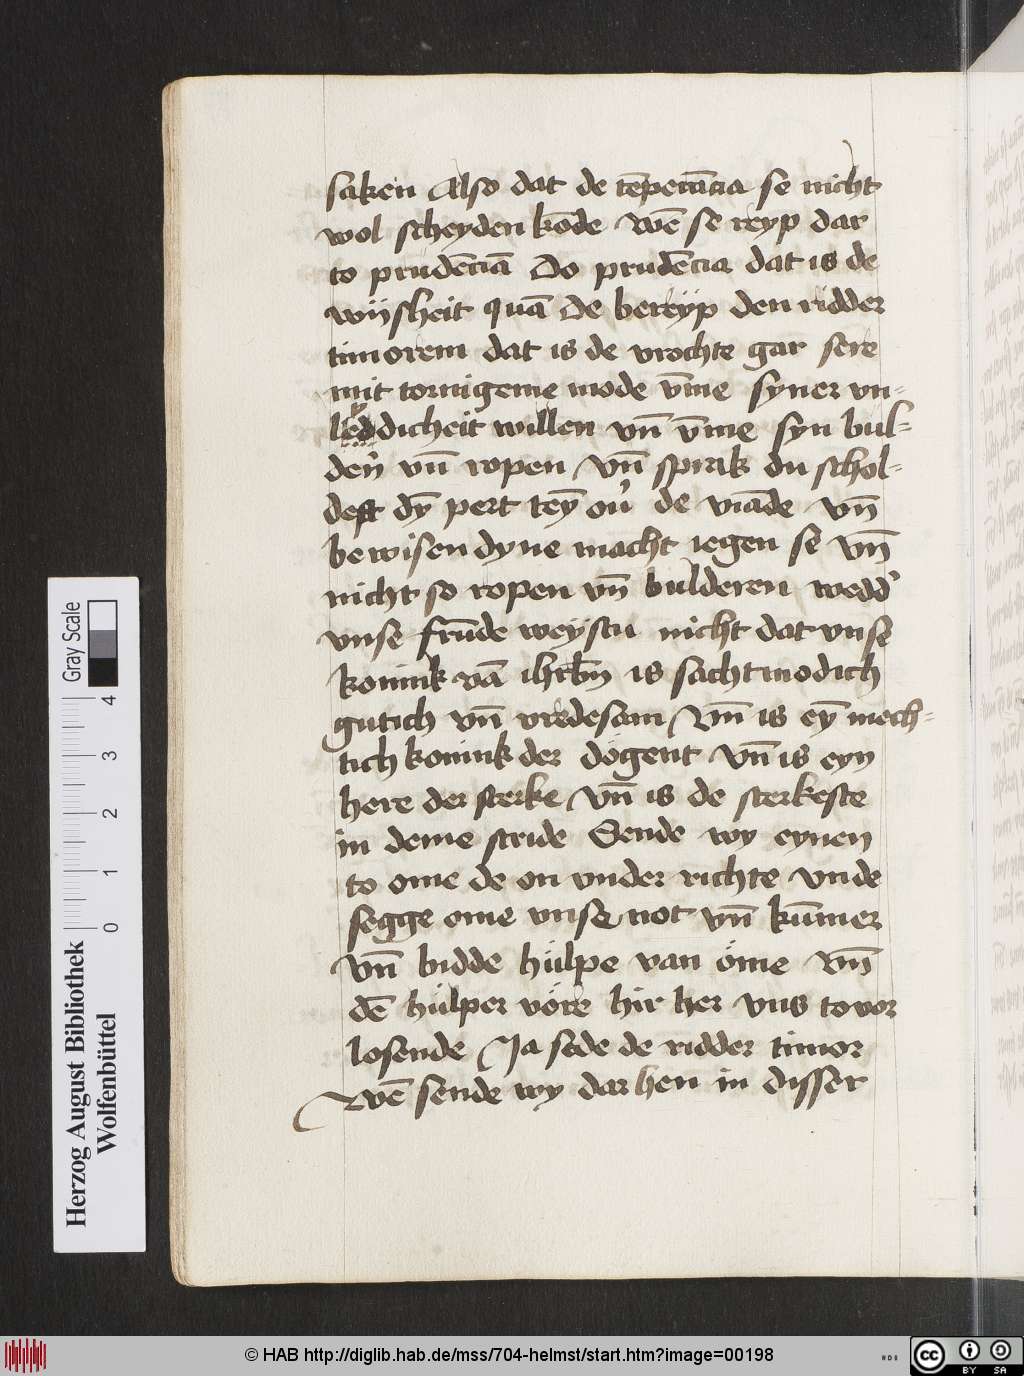 saken Also dat de tēperācia se nicht
wol scheyden kōde wē se reyp dar
to prudēciā Do prudēcia dat is de
wijsheit quā De bereyp den ridder
timorem dat is de vrochte gar sere
mit tornigeme mode v̄me syner vn-
leddicheit willen vn̄ v̄me syn bul-
den̄ vn̄ ropen vn̄ sprak du schol-
dest dȳ pert tēȳ ou̓ de viāde vn̄
bewisen dyne macht iegen se vn̄
nicht so ropen vn̄ bulderen wedd̓
vnse frūde weystu nicht dat vnse
konink vā ihrl̄m is sachtmodich
gutich vn̄ vredesam Vn̄ is eȳ mech-
tich konink der dögent vn̄ is eyn
here der sterke Vn̄ is de sterkeste
in deme stride Sende wy eynen
to ome de on vnder richte vnde
segge ome vnse not vn̄ kūmer
vn̄ bidde hülpe van öme vn̄
dē hülper vöre hir her vns to vor
losende Ja sede de ridder timor
Wē sende wy dar hen in disser
Herzog August Bibliothek
Wolfenbüttel
Gray Scale
0 1 2 3 4
© HAB http://diglib.hab.de/mss/704-helmst/start.htm?image=00198
cc BY SA